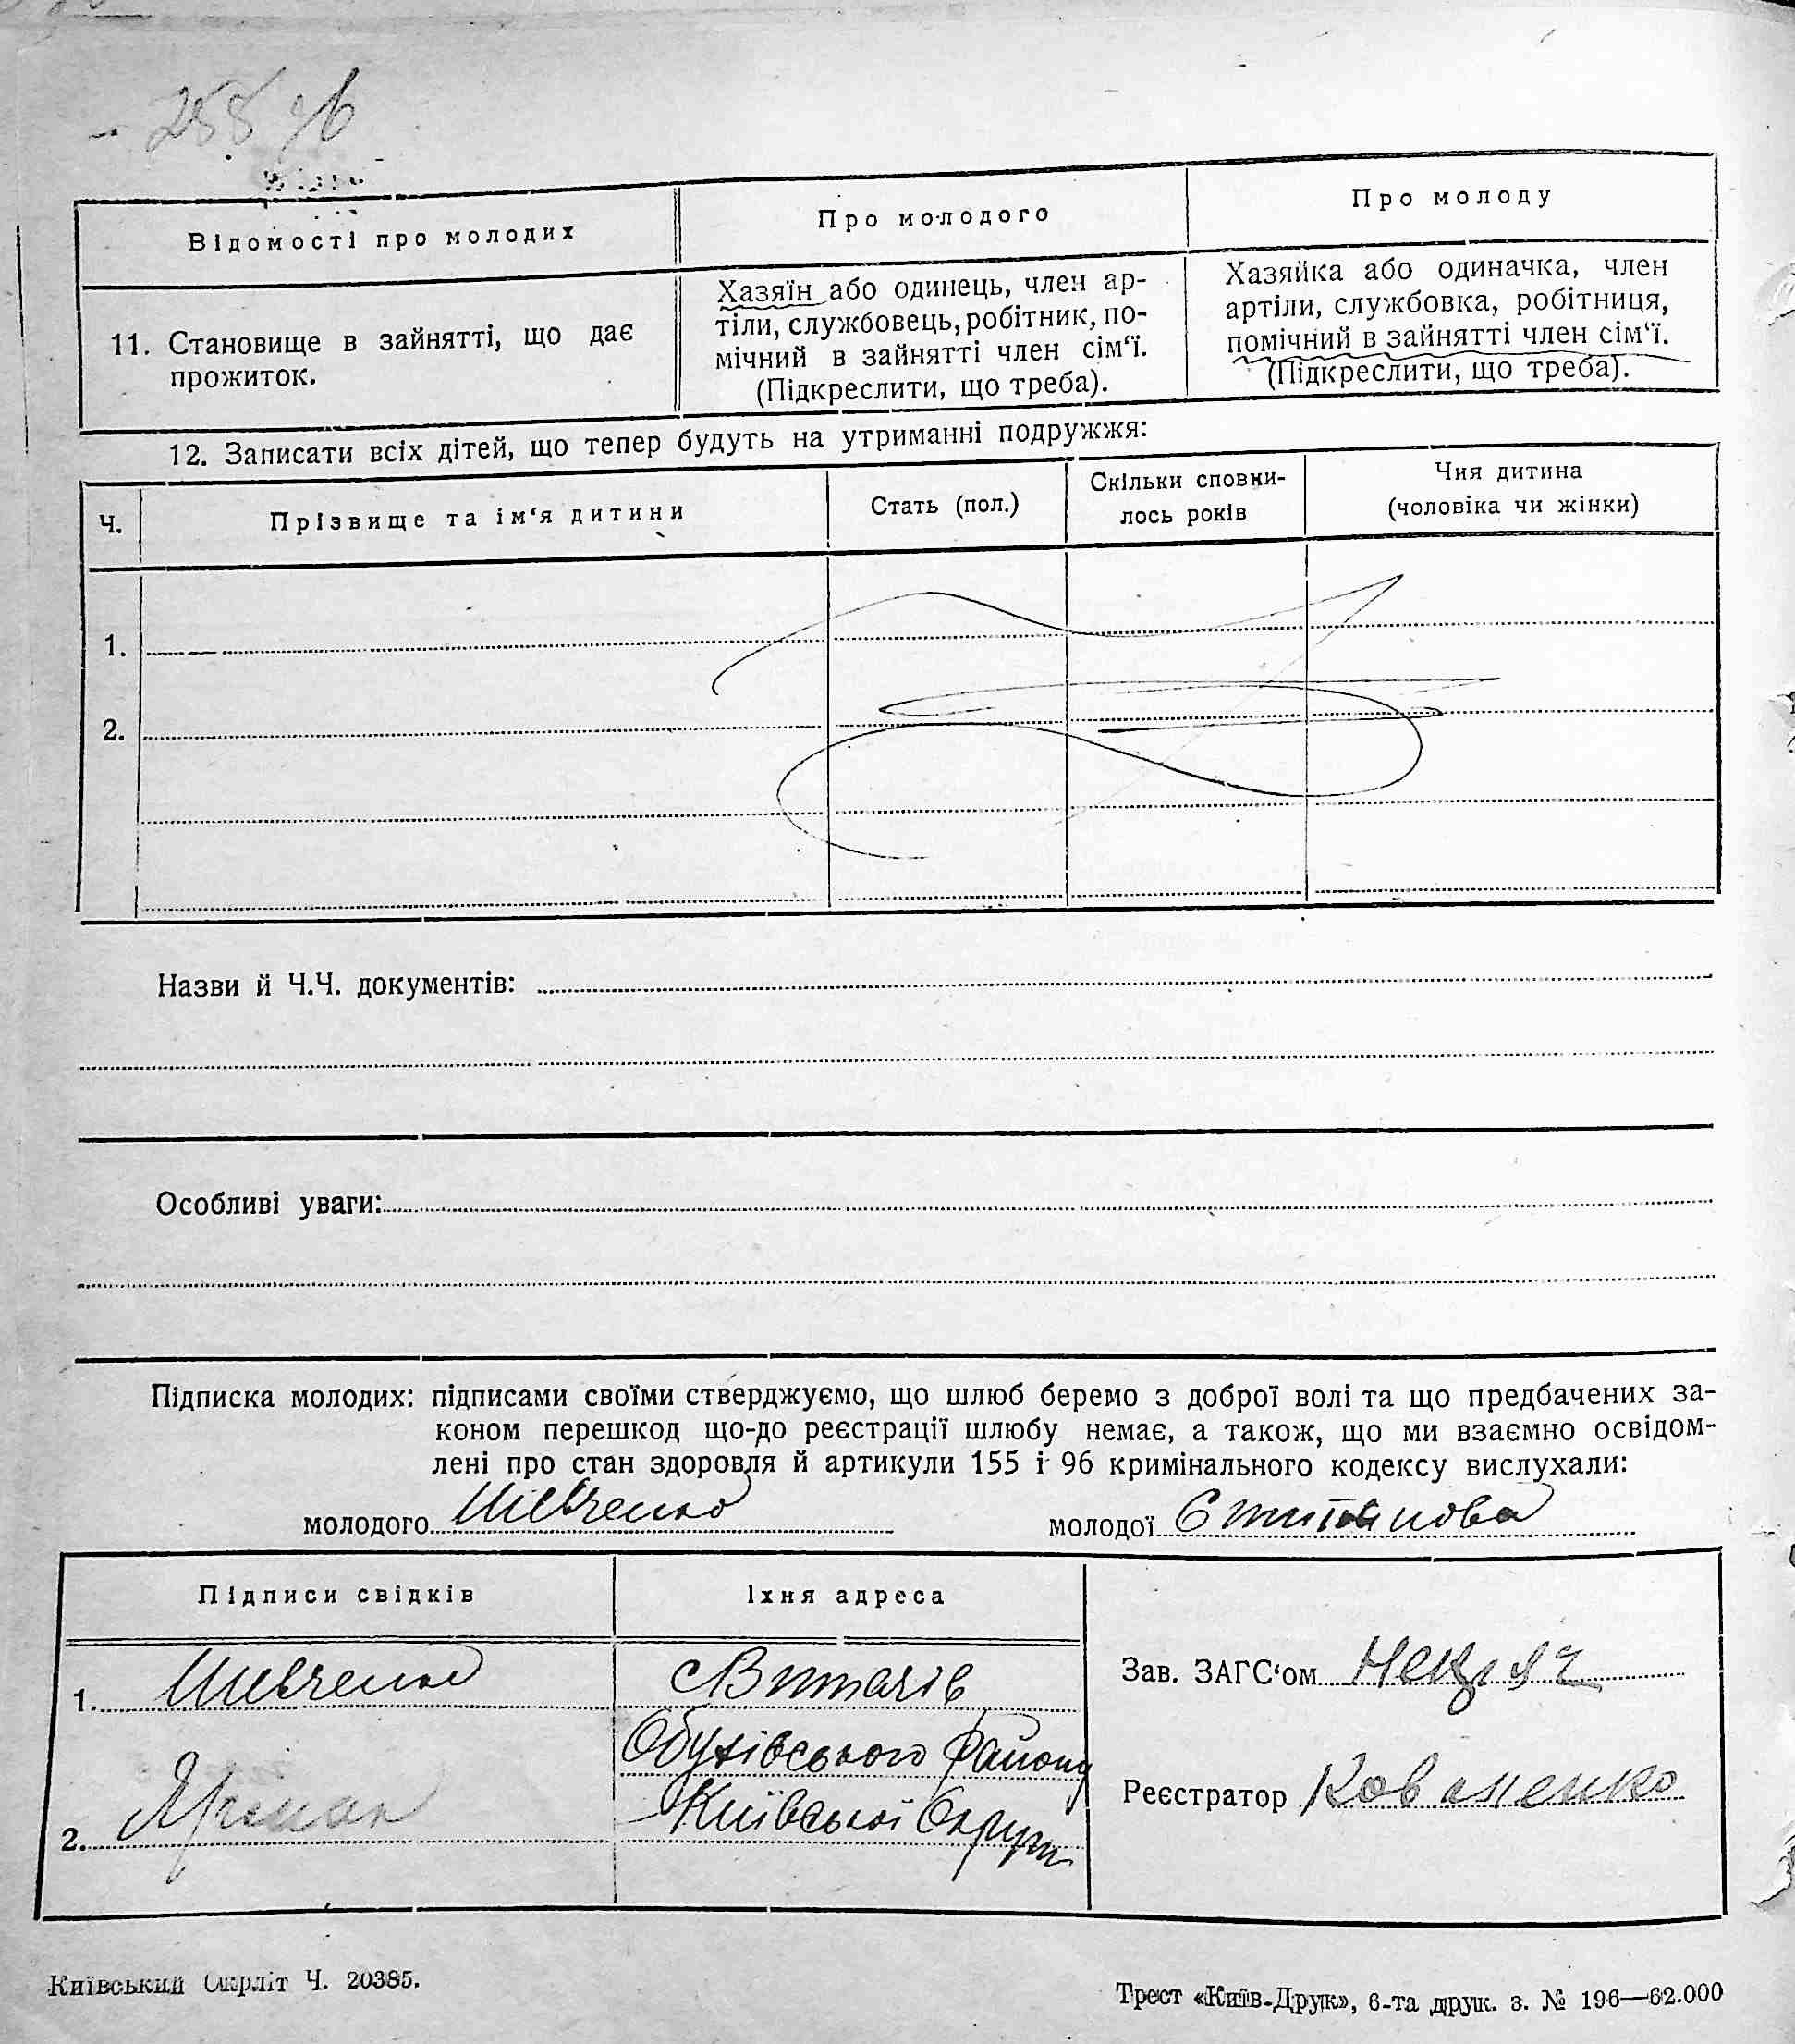 Відомості про молодих
Про молодого
Про молоду
11. Становище в зайнятті, що дає
прожиток.
Хазяїн або одинець, член ар-
тіли, службовець, робітник, по-
мічний в зайнятті член сім‘ї.
(Підкреслити, що треба).
Хазяйка або одиначка, член
артіли, службовка, робітниця,
помічний в зайнятті член сім‘ї.
(Підкреслити, що треба).
12. Записати всіх дітей, що тепер будуть на утриманні подружжя:
Ч.
Прізвище та ім‘я дитини
Стать (пол.)
Скільки сповни-
лось років
Чия дитина
(чоловіка чи жінки)
1.
2.
Назви й Ч.Ч. документів:
Особливі уваги:
Підписка молодих: підписами своїми стверджуємо, що шлюб беремо з доброї волі та що предбачених за-
коном перешкод що-до реєстрації шлюбу немає, а також, що ми взаємно освідом-
лені про стан здоровля й артикули 155 і 96 кримінального кодексу вислухали:
молодого Шевченко молодої
Підписи свідків
Їхня адреса
1. Шевченко
с Витачів
Обухівського району
Київської Округи
2.
Зав. ЗАГС‘ом
Реєстратор Коваленко
Київський Окрліт Ч. 20385.
Трест «Київ-Друк», 6-та друк. з. № 196—62.000